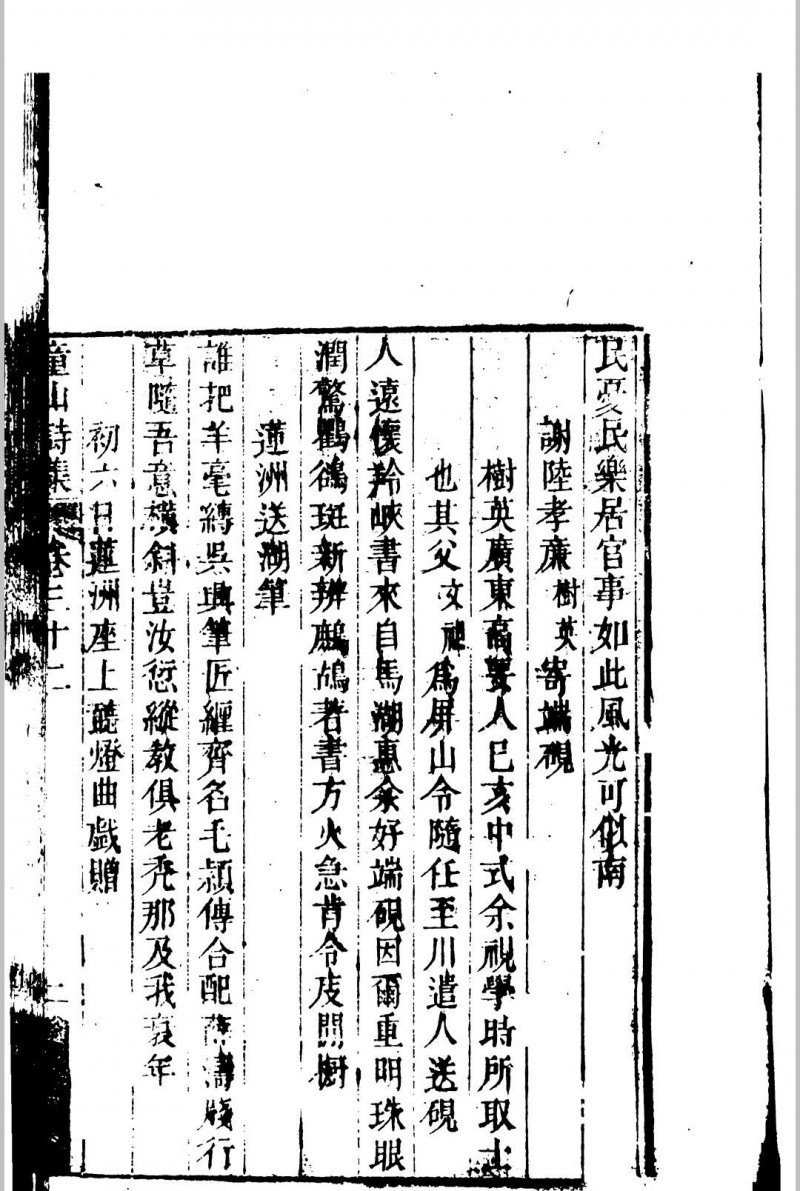 民憂民樂居官事如此風光可似南
謝陸孝廉樹英寄端硯
樹英廣東高要人巳亥中式余視學時所取士
也其父文祖爲屏山令隨任至川遣人送硯
人遠懷羚峽書來自馬湖惠余好端硯因爾重明珠眼
潤驚鸜鵒斑新辨鷓鴣著書方火急肯令庋閒橱
蓮洲送湖筆
誰把羊毫縛吳興筆匠纏齊名毛穎傳合配薛濤牋行
草隨吾意橫斜豈汝愆縱教俱老禿那及我衰年
初六日蓮洲座上聽燈曲戲贈
童山詩集 卷三十二 二